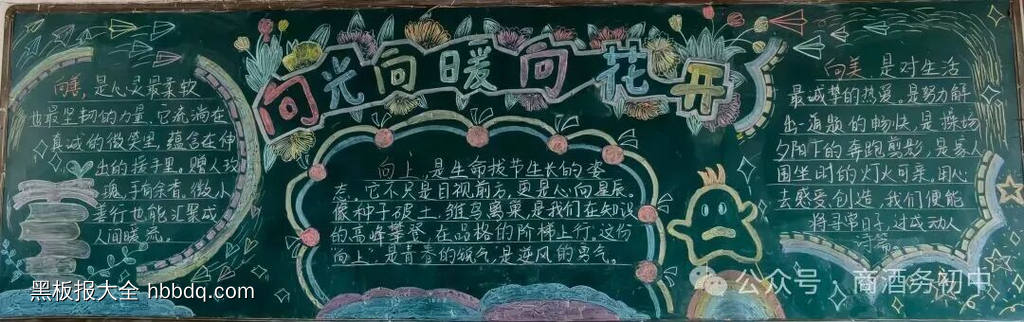 向光向暖向花开
向善，是心灵最柔软
也最坚韧的力量。它流淌在
真诚的微笑里，蕴含在伸
出的援手里。赠人玫
瑰，手有余香。微小
善行也能汇聚成
人间暖流。
向上，是生命拔节生长的姿
态。它不只是目视前方，更是心向星辰。
像种子破土，雏鸟离巢，是我们在知识
的高峰攀登，在品格的阶梯上行。这份
向上，是青春的锐气，是逆风的勇气。
向美，是对生活
最诚挚的热爱。是努力解
出一道题的畅快，是操场
夕阳下的奔跑剪影，是家人
围坐时的灯火可亲。用心
去感受、创造，我们便能
将寻常日子，过成动人
诗篇
黑板报大全 hbbdq.com
公众号·商酒务初中